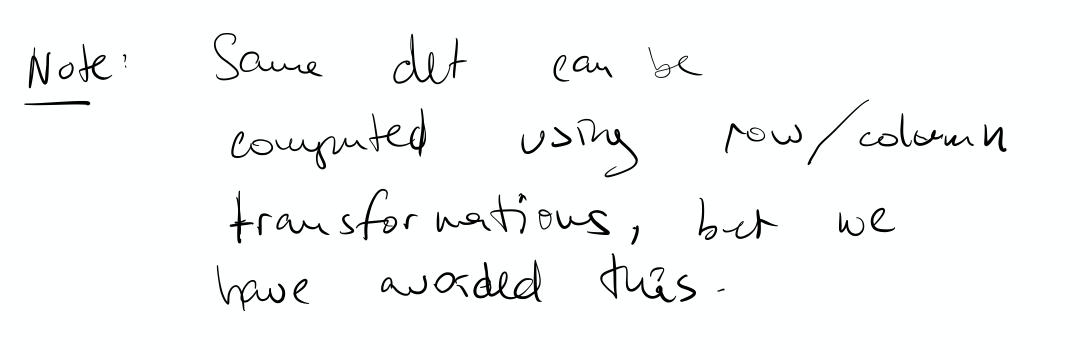 Note: Same det can be
computed using row/column
transformations, but we
have avoided this.